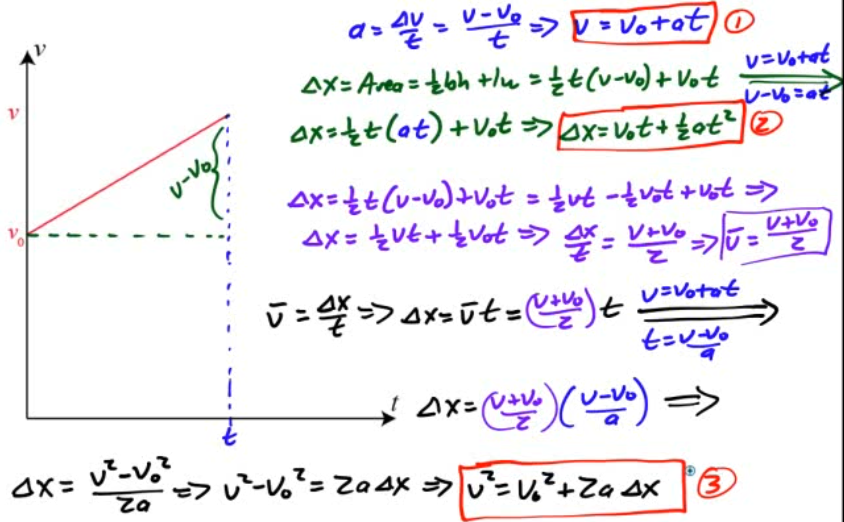 a = Δv/t = v-v₀/t => v = v₀ + at ①
Δx = Area = ½bh + lw = ½t(v-v₀) + v₀t
v = v₀ + at
v-v₀ = at
Δx = ½t(at) + v₀t => Δx = v₀t + ½at² ②
Δx = ½t(v-v₀) + v₀t = ½vt - ½v₀t + v₀t =>
Δx = ½vt + ½v₀t => Δx/t = v+v₀/2 => v̄ = v+v₀/2
v̄ = Δx/t => Δx = v̄t = (v+v₀/2)t
v = v₀ + at
t = v-v₀/a
Δx = (v+v₀/2)(v-v₀/a) =>
Δx = v²-v₀²/2a => v²-v₀² = 2aΔx => v² = v₀² + 2aΔx ③
v
v
v-v₀
v₀
t
t